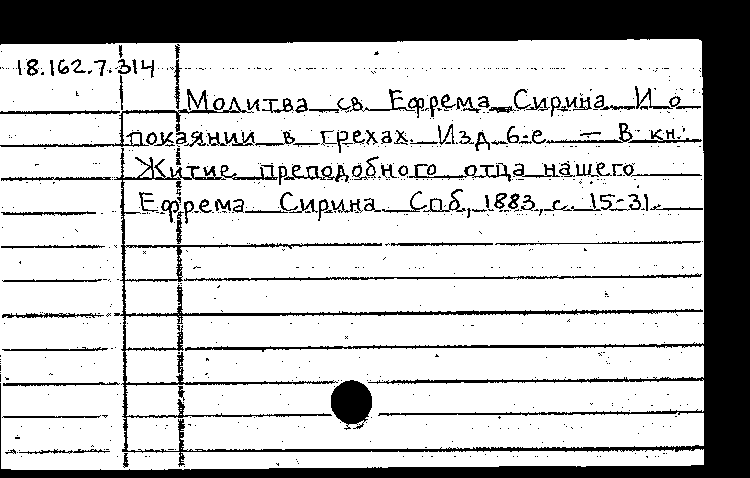 18.162.7.314
Молитва св. Ефрема Сирина И о
покаянии в грехах. Изд. 6-е. — В кн.:
Житие преподобного отца нашего
Ефрема Сирина. Спб., 1883, с. 15-31.